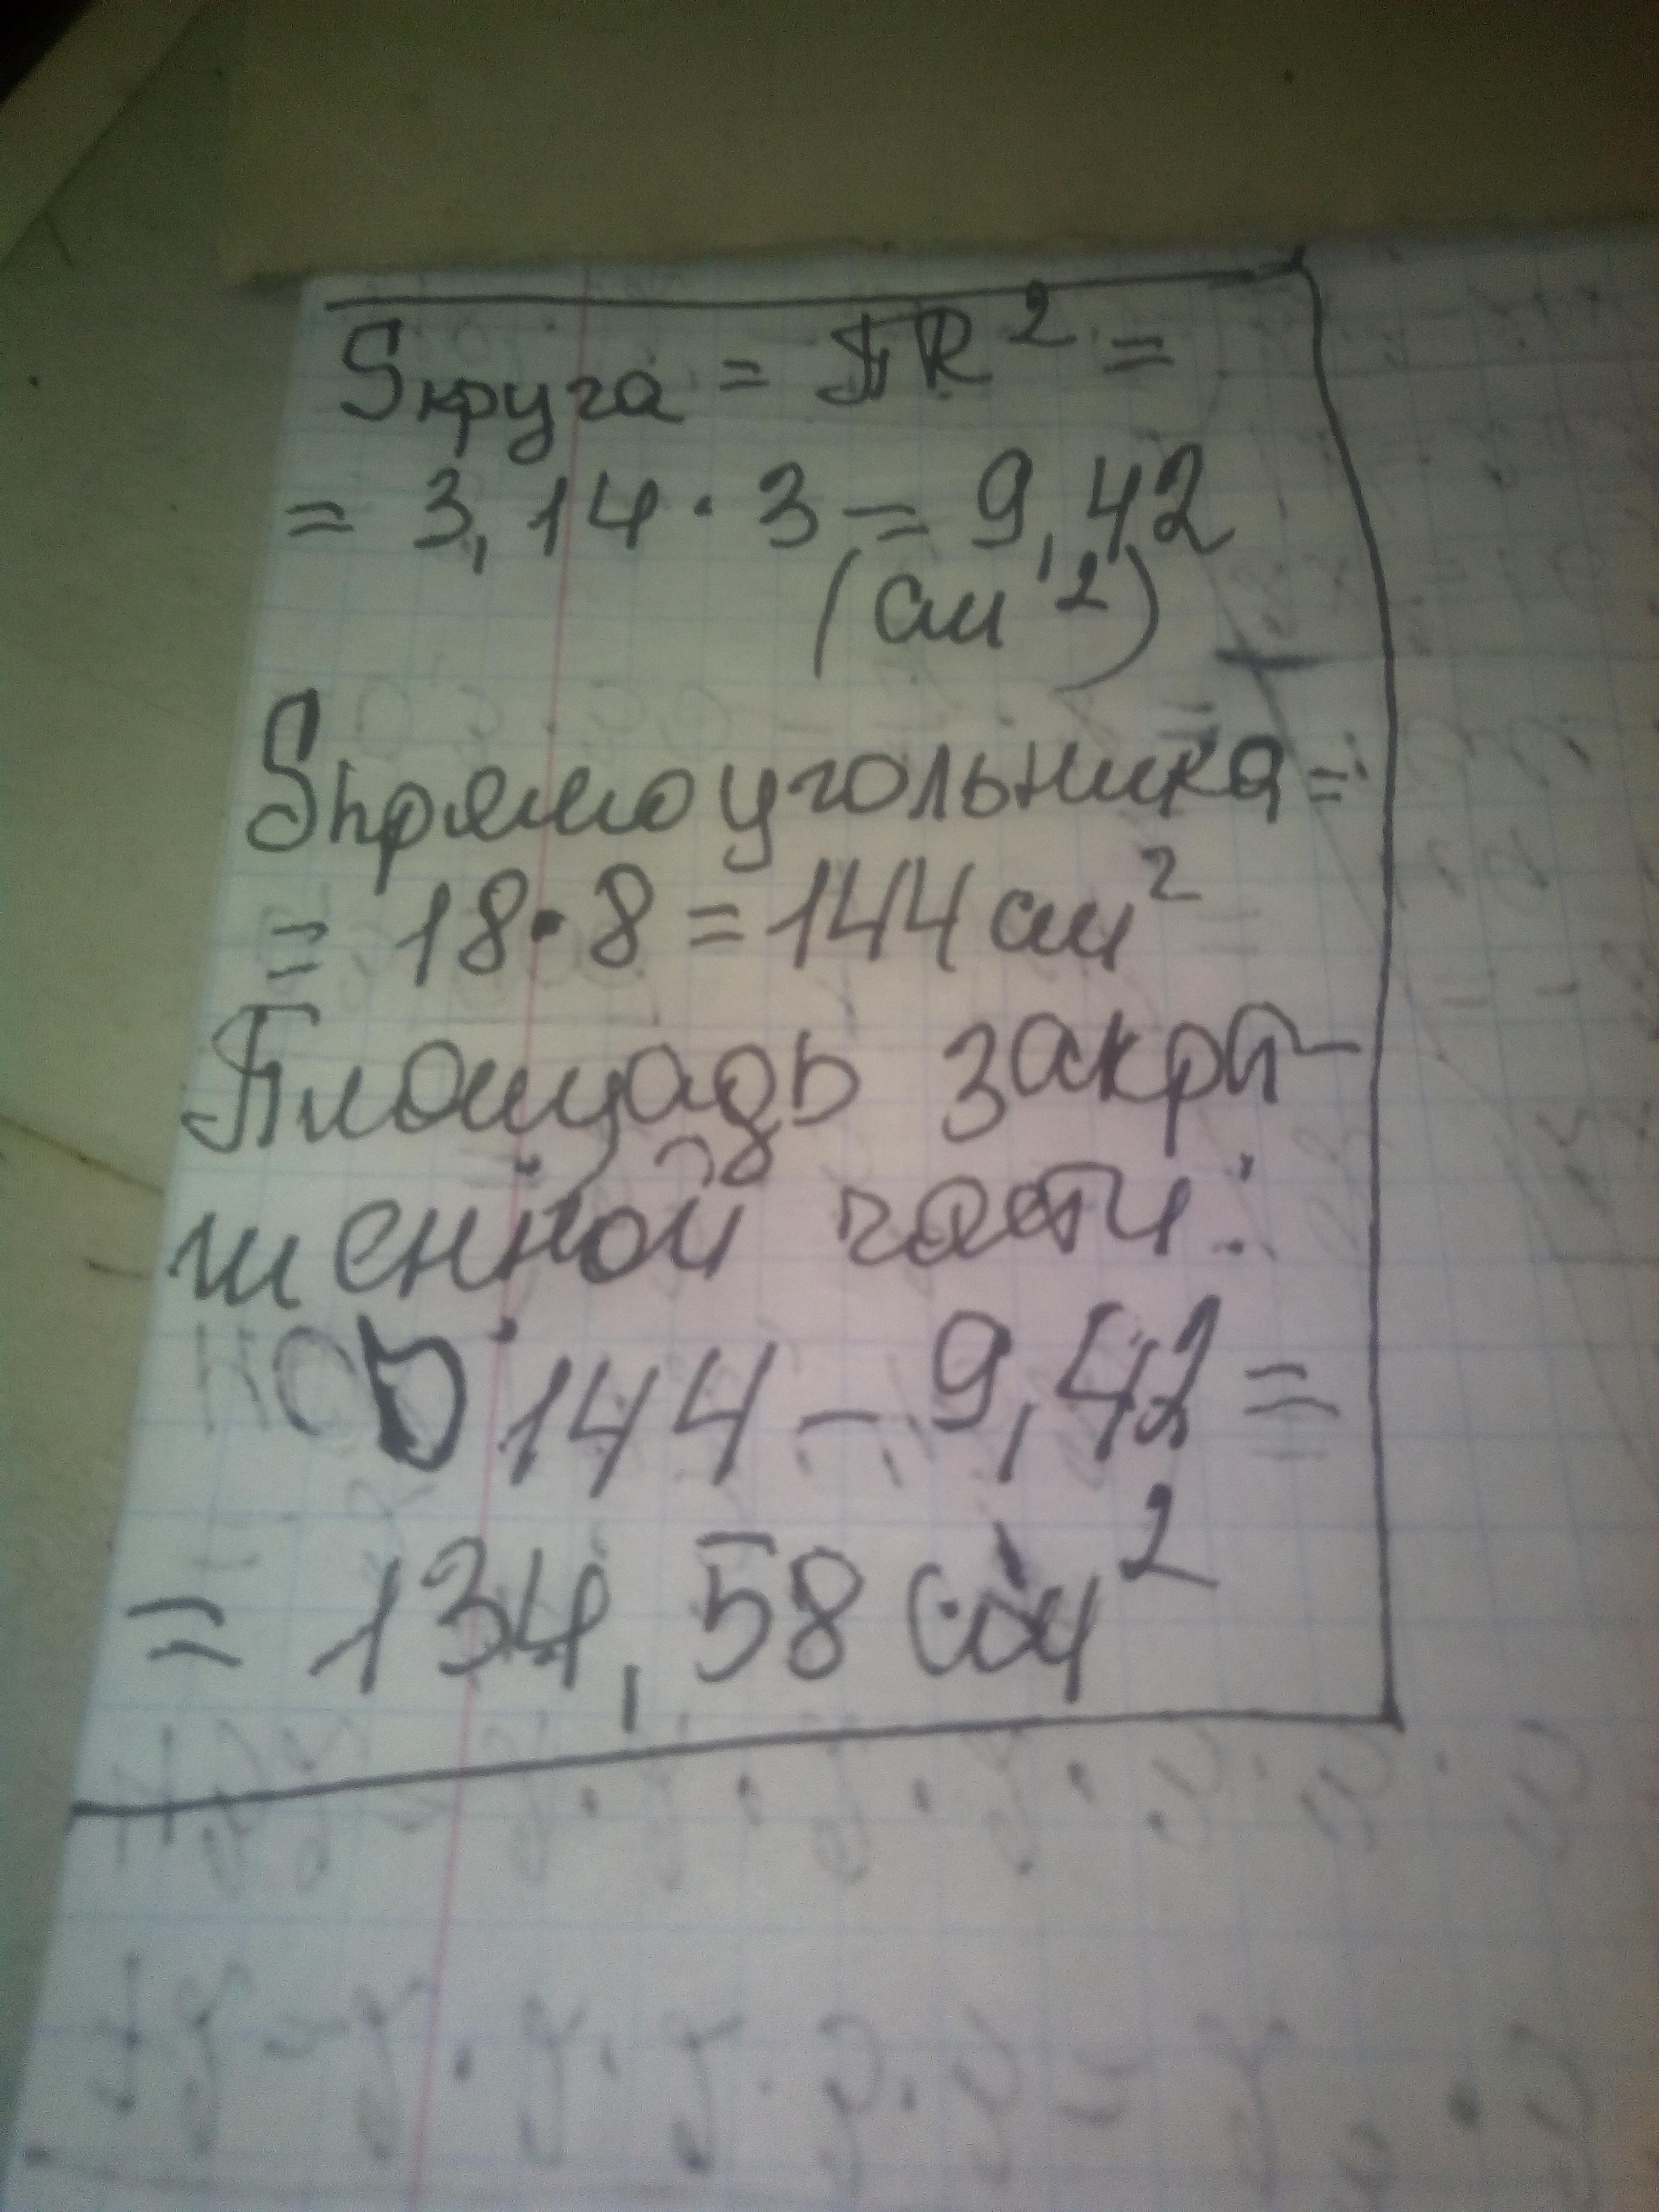 Sкруга = ПR² =
= 3,14 · 3 = 9,42
(см²)
Sпрямоугольника =
= 18 · 8 = 144 см²
Площадь закра-
шенной части:
144 - 9,42 =
= 134,58 см²